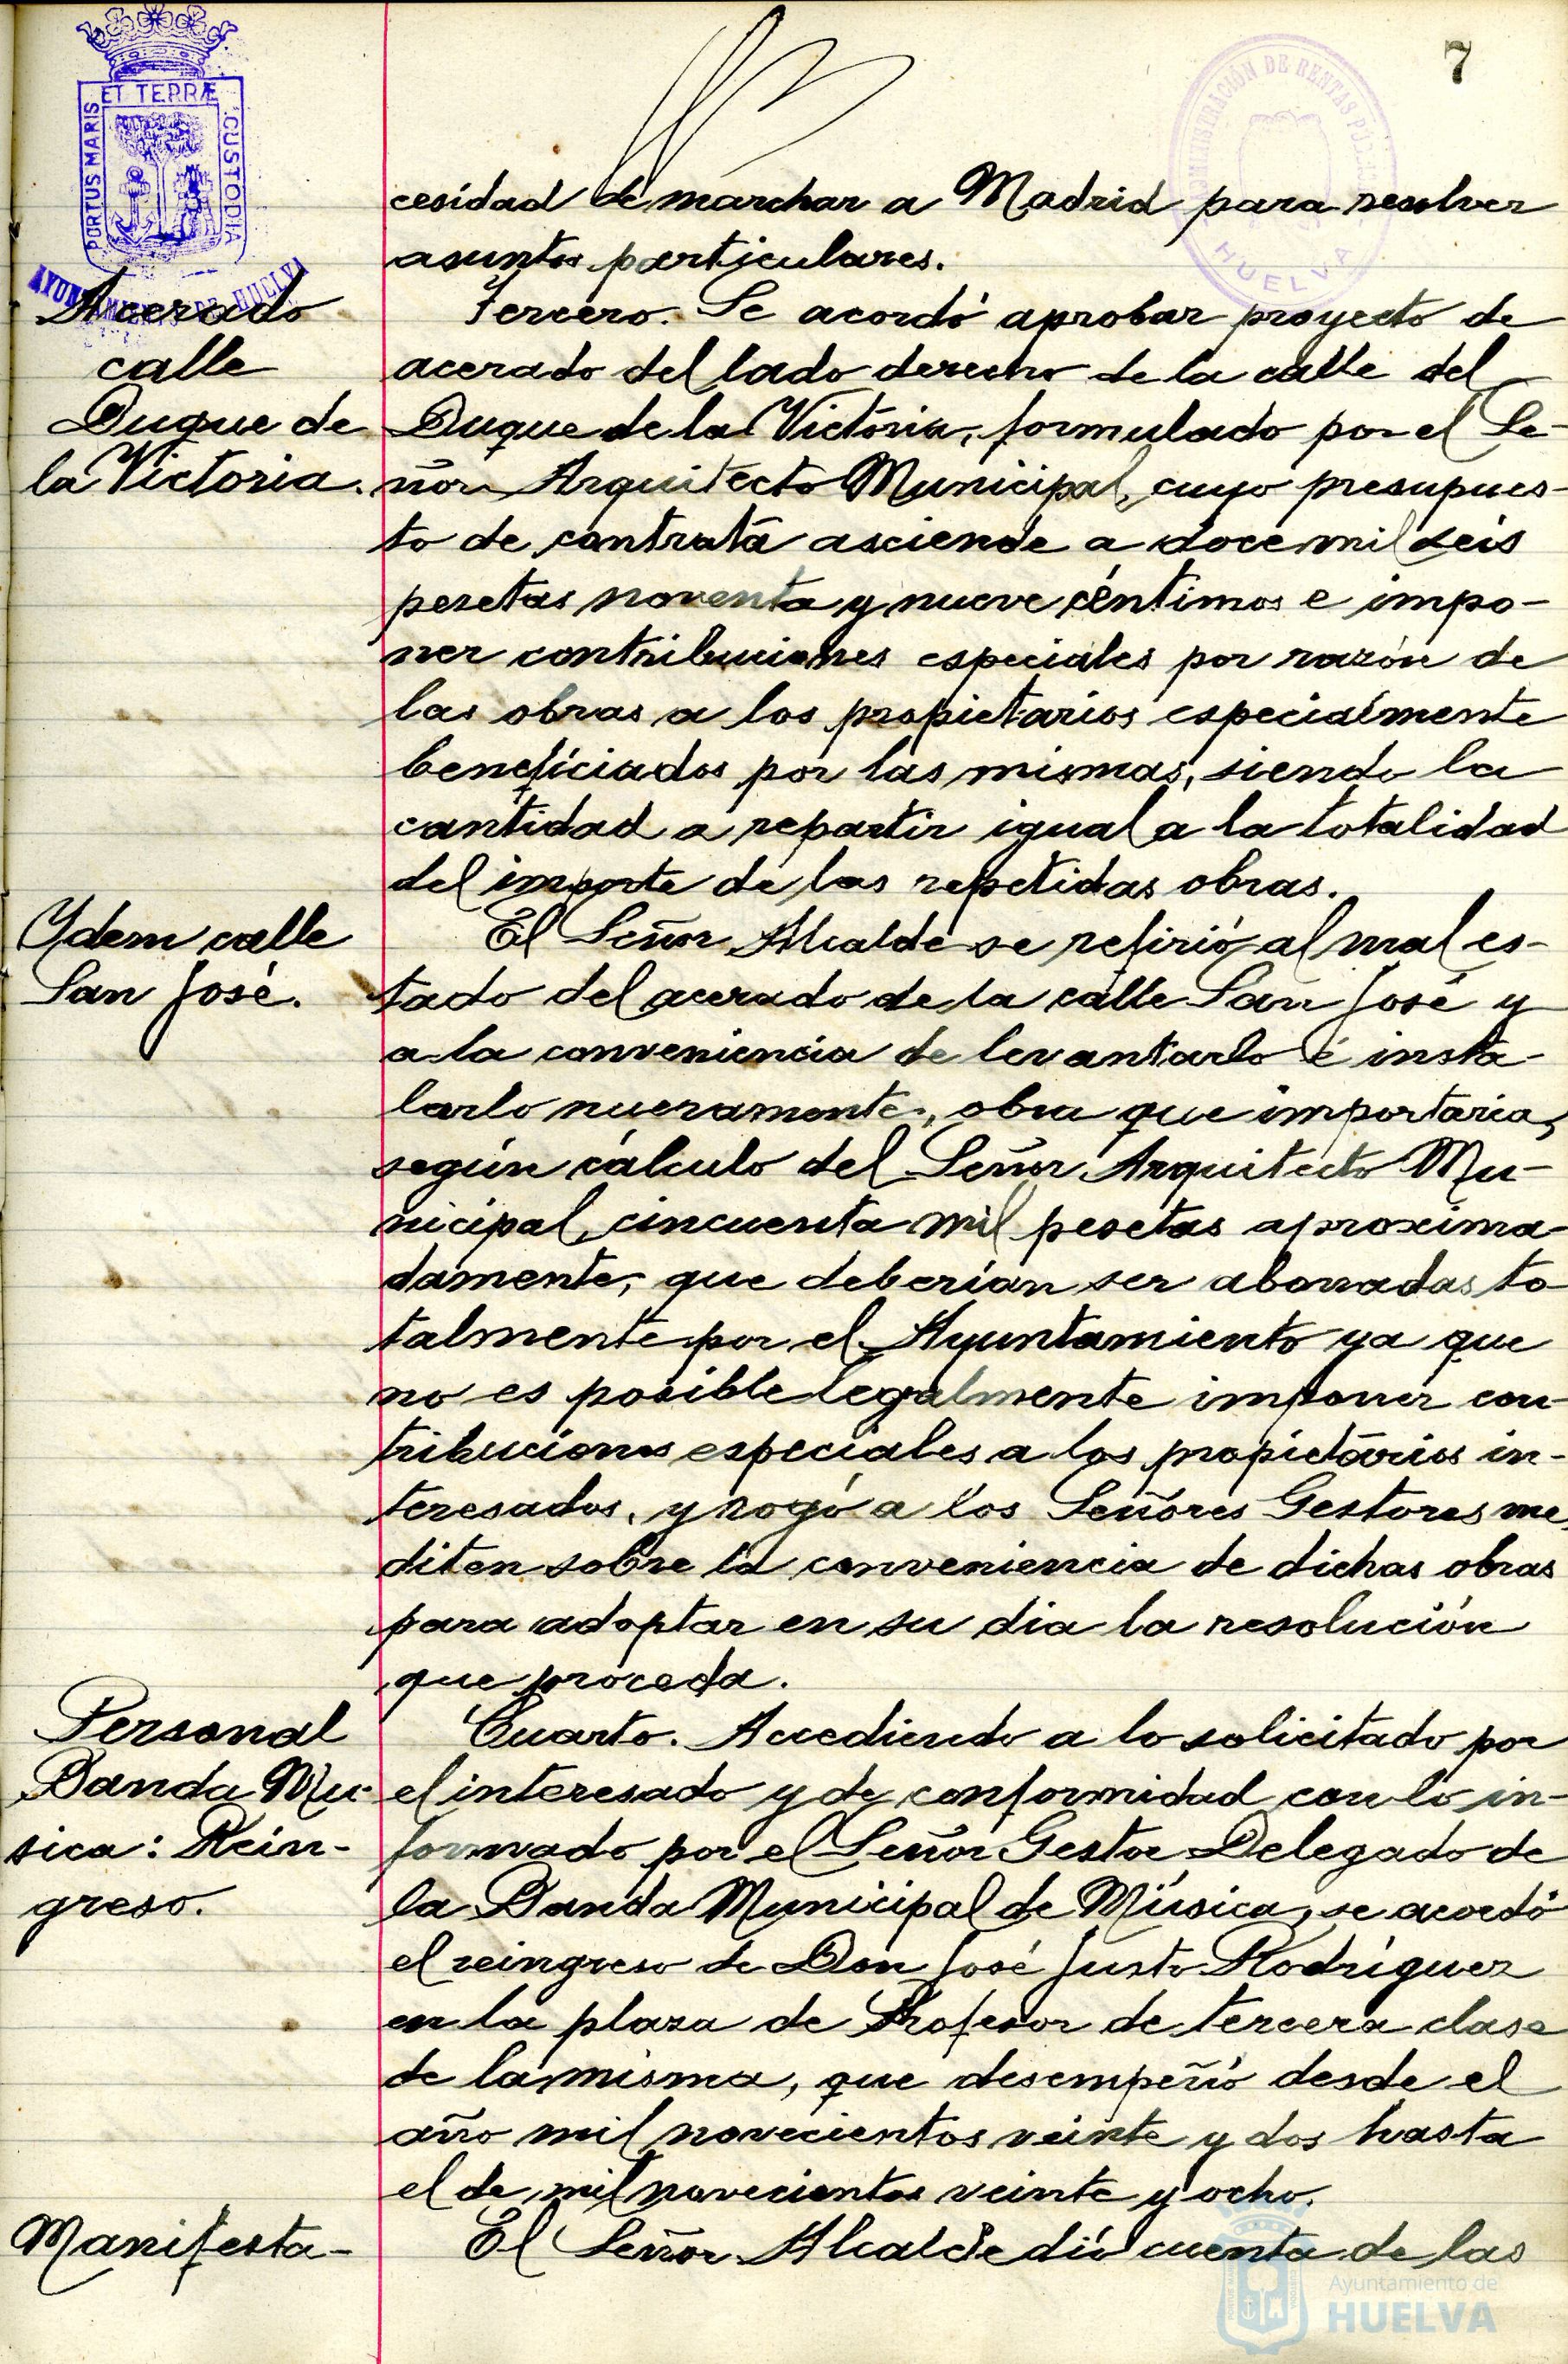 7
ET TERRÆ
PORTUS MARIS
CUSTODIA
AYUNTAMIENTO DE HUELVA
ADMINISTRACIÓN DE RENTAS PÚBLICAS
HUELVA
cesidad de marchar a Madrid para resolver
asuntos particulares.
Acerado
calle
Duque de
la Victoria.
Tercero. Se acordó aprobar proyecto de
acerado del lado derecho de la calle del
Duque de la Victoria, formulado por el Se-
ñor Arquitecto Municipal, cuyo presupues-
to de contrata asciende a doce mil seis
pesetas noventa y nueve céntimos e impo-
ner contribuciones especiales por razón de
las obras a los propietarios especialmente
beneficiados por las mismas, siendo la
cantidad a repartir igual a la totalidad
del importe de las repetidas obras.
Ydem calle
San José.
El Señor Alcalde se refirió al mal es-
tado del acerado de la calle San José y
a la conveniencia de levantarlo é insta-
larlo nuevamente, obra que importaria,
según cálculo del Señor Arquitecto Mu-
nicipal, cincuenta mil pesetas aproxima-
damente, que deberian ser abonadas to-
talmente por el Ayuntamiento ya que
no es posible legalmente imponer con-
tribuciones especiales a los propietarios in-
teresados, y rogó a los Señores Gestores me-
diten sobre la conveniencia de dichas obras
para adoptar en su dia la resolución
que proceda.
Personal
Banda Mu-
sica: Rein-
greso.
Cuarto. Accediendo a lo solicitado por
el interesado y de conformidad con lo in-
formado por el Señor Gestor Delegado de
la Banda Municipal de Música, se acordó
el reingreso de Don José Justo Rodríguez
en la plaza de Profesor de tercera clase
de la misma, que desempeñó desde el
año mil novecientos veinte y dos hasta
el de mil novecientos veinte y ocho.
Manifesta-
El Señor Alcalde dió cuenta de las
Ayuntamiento de
HUELVA